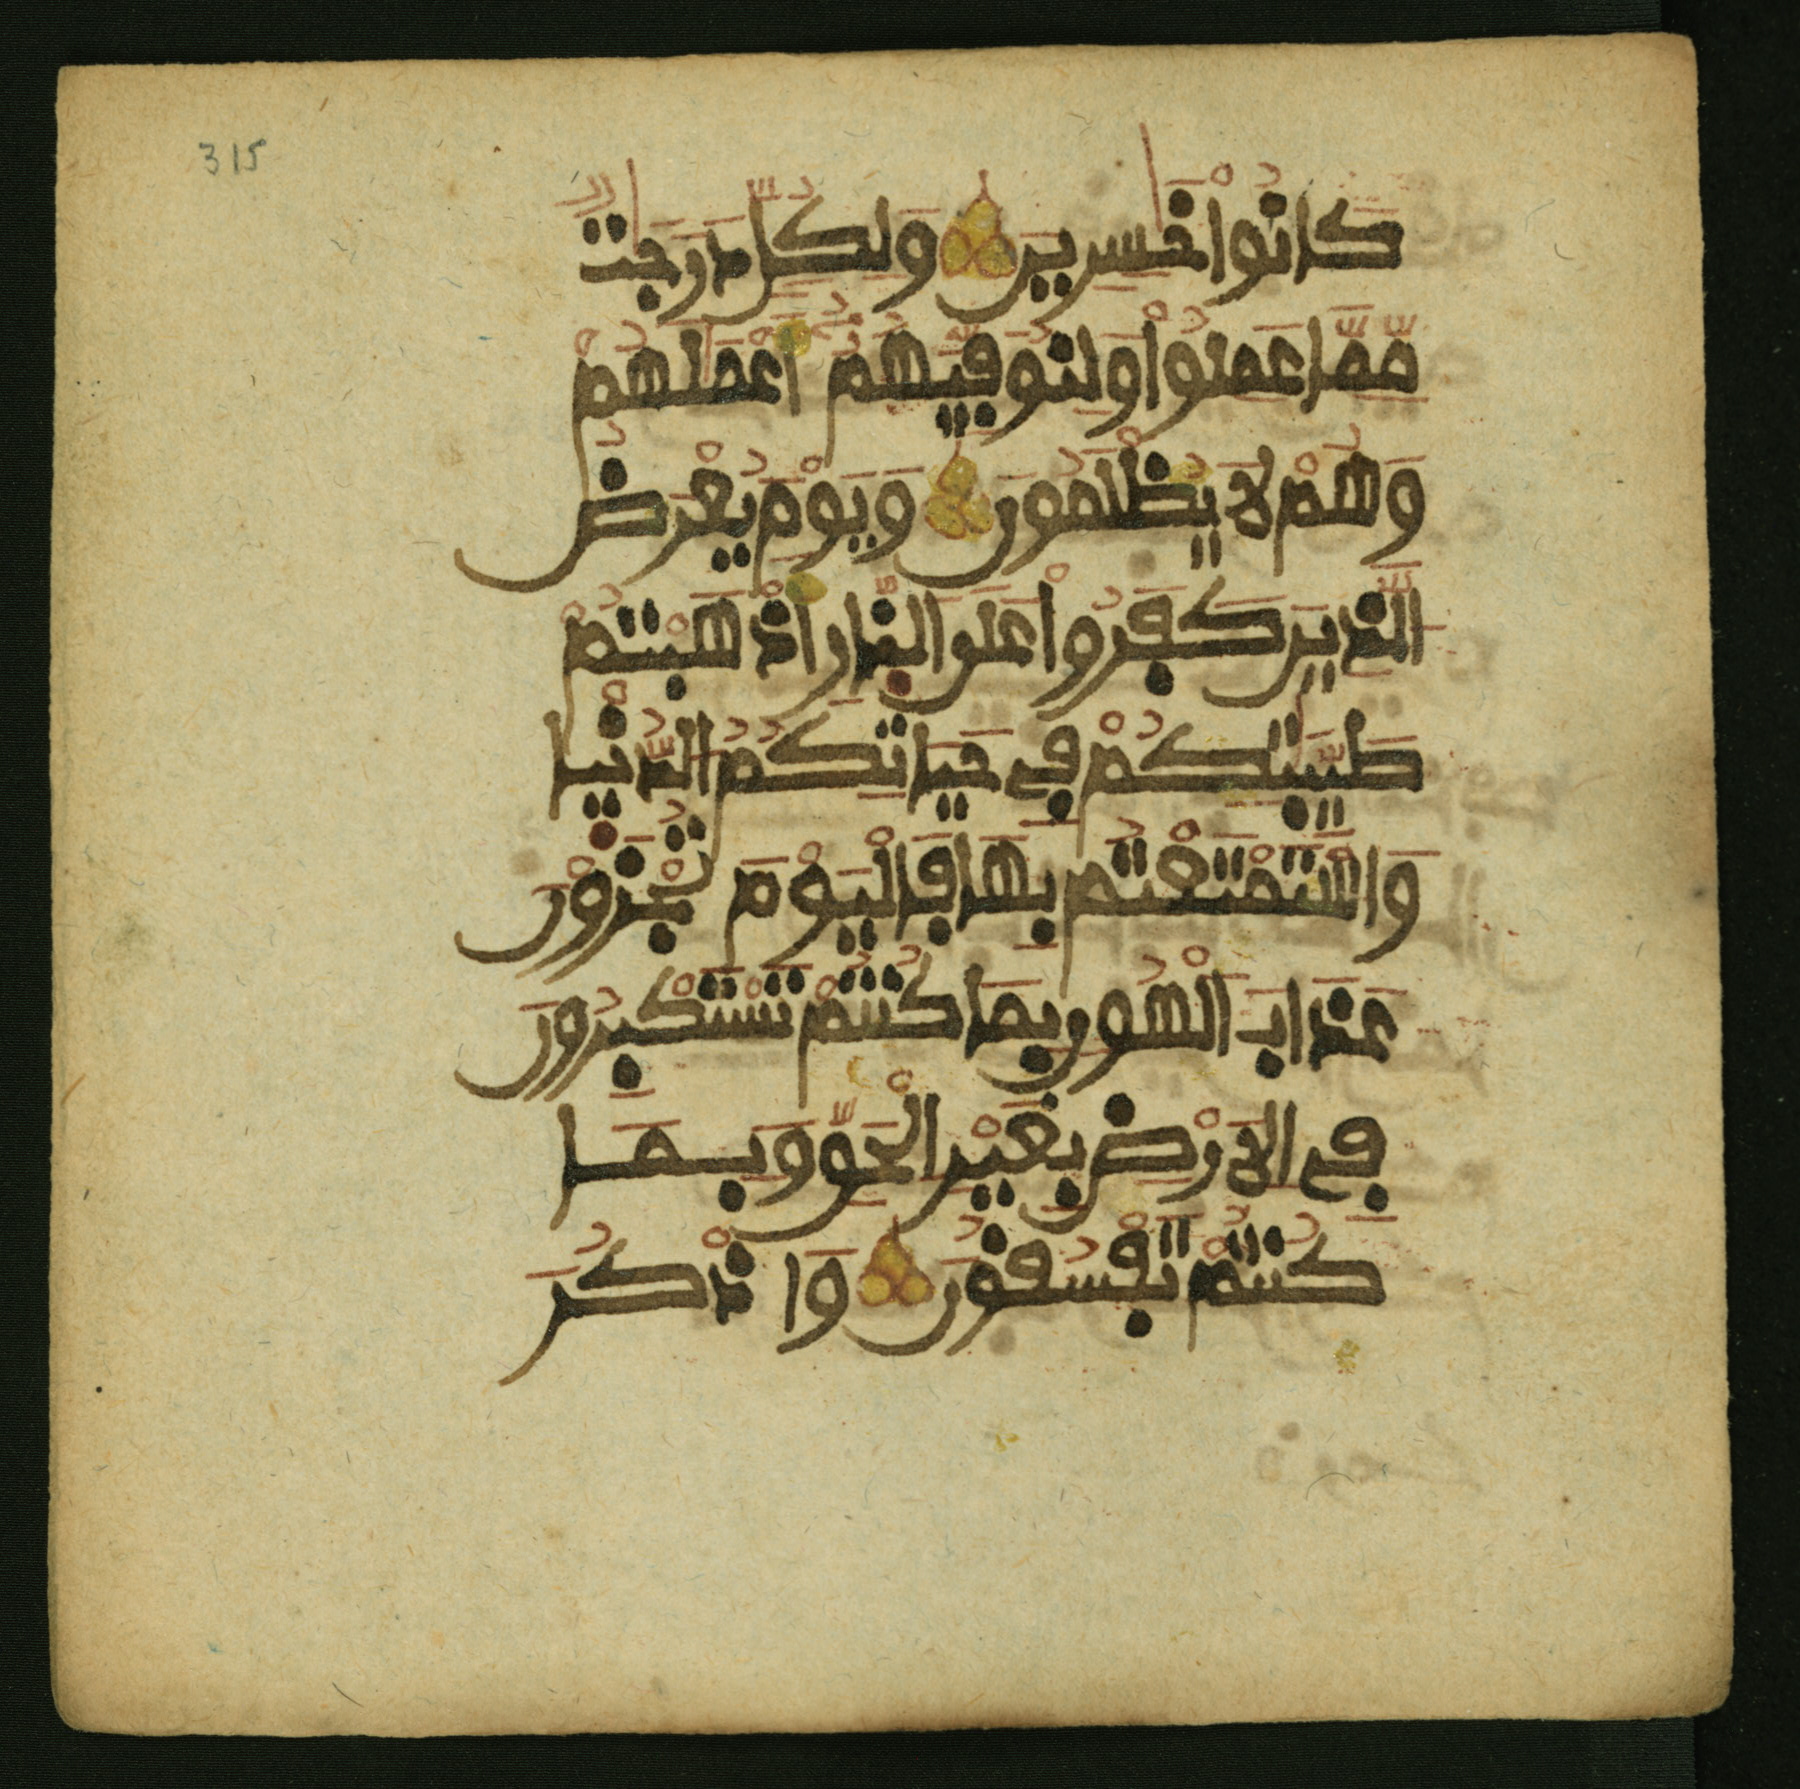 315
كَانُواْ خَٰسِرِينَ وَلِكُلّٖ دَرَجَٰتٞ
مِّمَّا عَمِلُواْ وَلِنُوَفِّيَهُمُۥٓ أَعْمَٰلَهُمْ
وَهُمْ لَا يُظْلَمُونَ وَيَوْمَ يُعْرَضُ
الَّذِينَ كَفَرُواْ عَلَى النّ۪ارِ أَذْهَبْتُمْ
طَيِّبَٰتِكُمْ فِي حَيَاتِكُمُ الدُّنْي۪ا
وَاسْتَمْتَعْتُم بِهَا فَالْيَوْمَ تُجْزَوْنَ
عَذَابَ الْهُونِ بِمَا كُنتُمْ تَسْتَكْبِرُونَ
فِي الَارْضِ بِغَيْرِ الْحَقِّ وَبِمَا
كُنتُمْ تَفْسُقُونَ وَاذْكُرَ